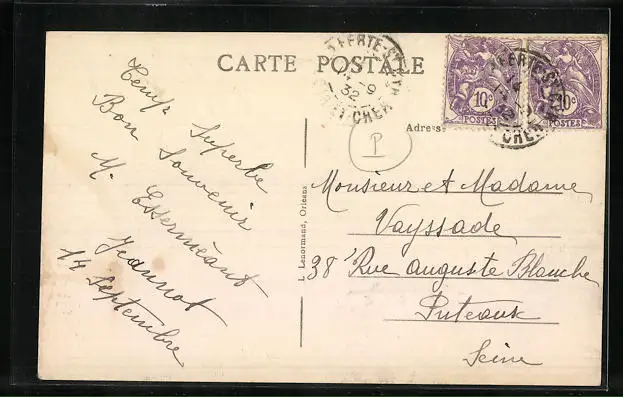 CARTE POSTALE
Temps Superbe
Bon Souvenir
M.
Jeannot
14 Septembre
LA FERTE-ST-CYR
14 9
32
LOIR ET CHER
10c
POSTES
10c
POSTES
Adresse
P
L. Lenormand, Orléans
Monsieur et Madame
Vayssade
38 Rue Auguste Blanche
Puteaux
Seine